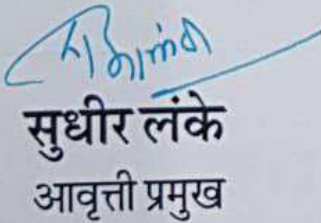 सुधीर लंके
आवृत्ती प्रमुख